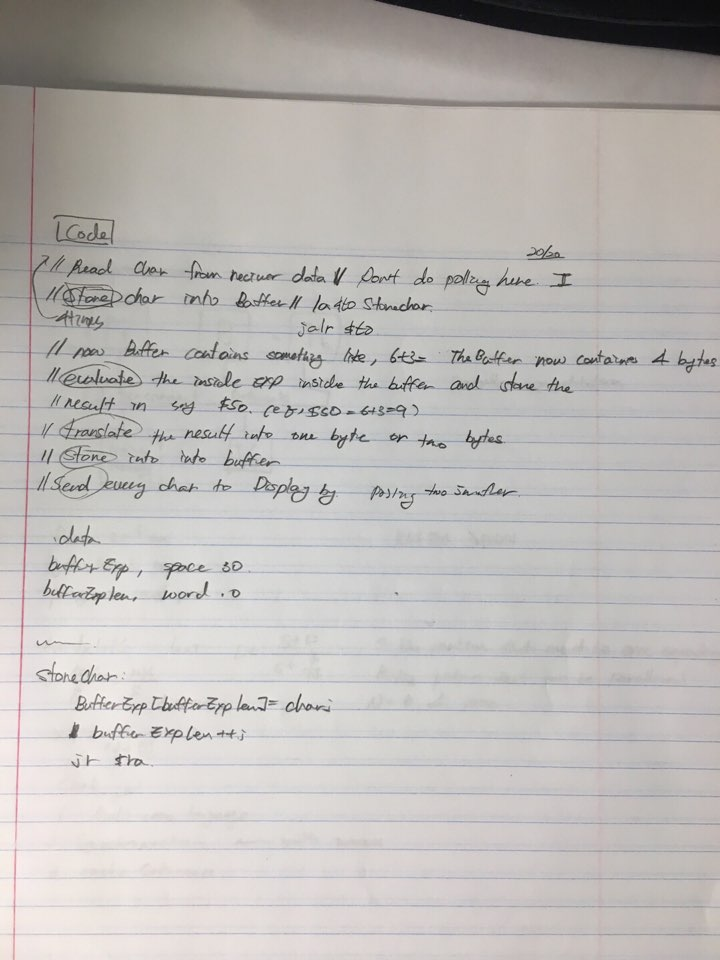 Code
20/20
// Read Char from reciver data // Don't do polling here. I
// Store char into Buffer // la $t0 Storechar.
4times
jalr $t0
// now Buffer contains something like, 6+3= The Buffer now containes 4 bytes
// evaluate the inside exp inside the buffer and store the
// result in say $S0. (e.g, $S0 = 6+3=9)
// translate the result into one byte or two bytes
// Store into into buffer
// Send every char to Display by Polling two
.data
bufferExp, space 30
bufferExplen, word .0
storeChar:
BufferExp[bufferExplen]= char;
bufferExplen++;
jr $ra.